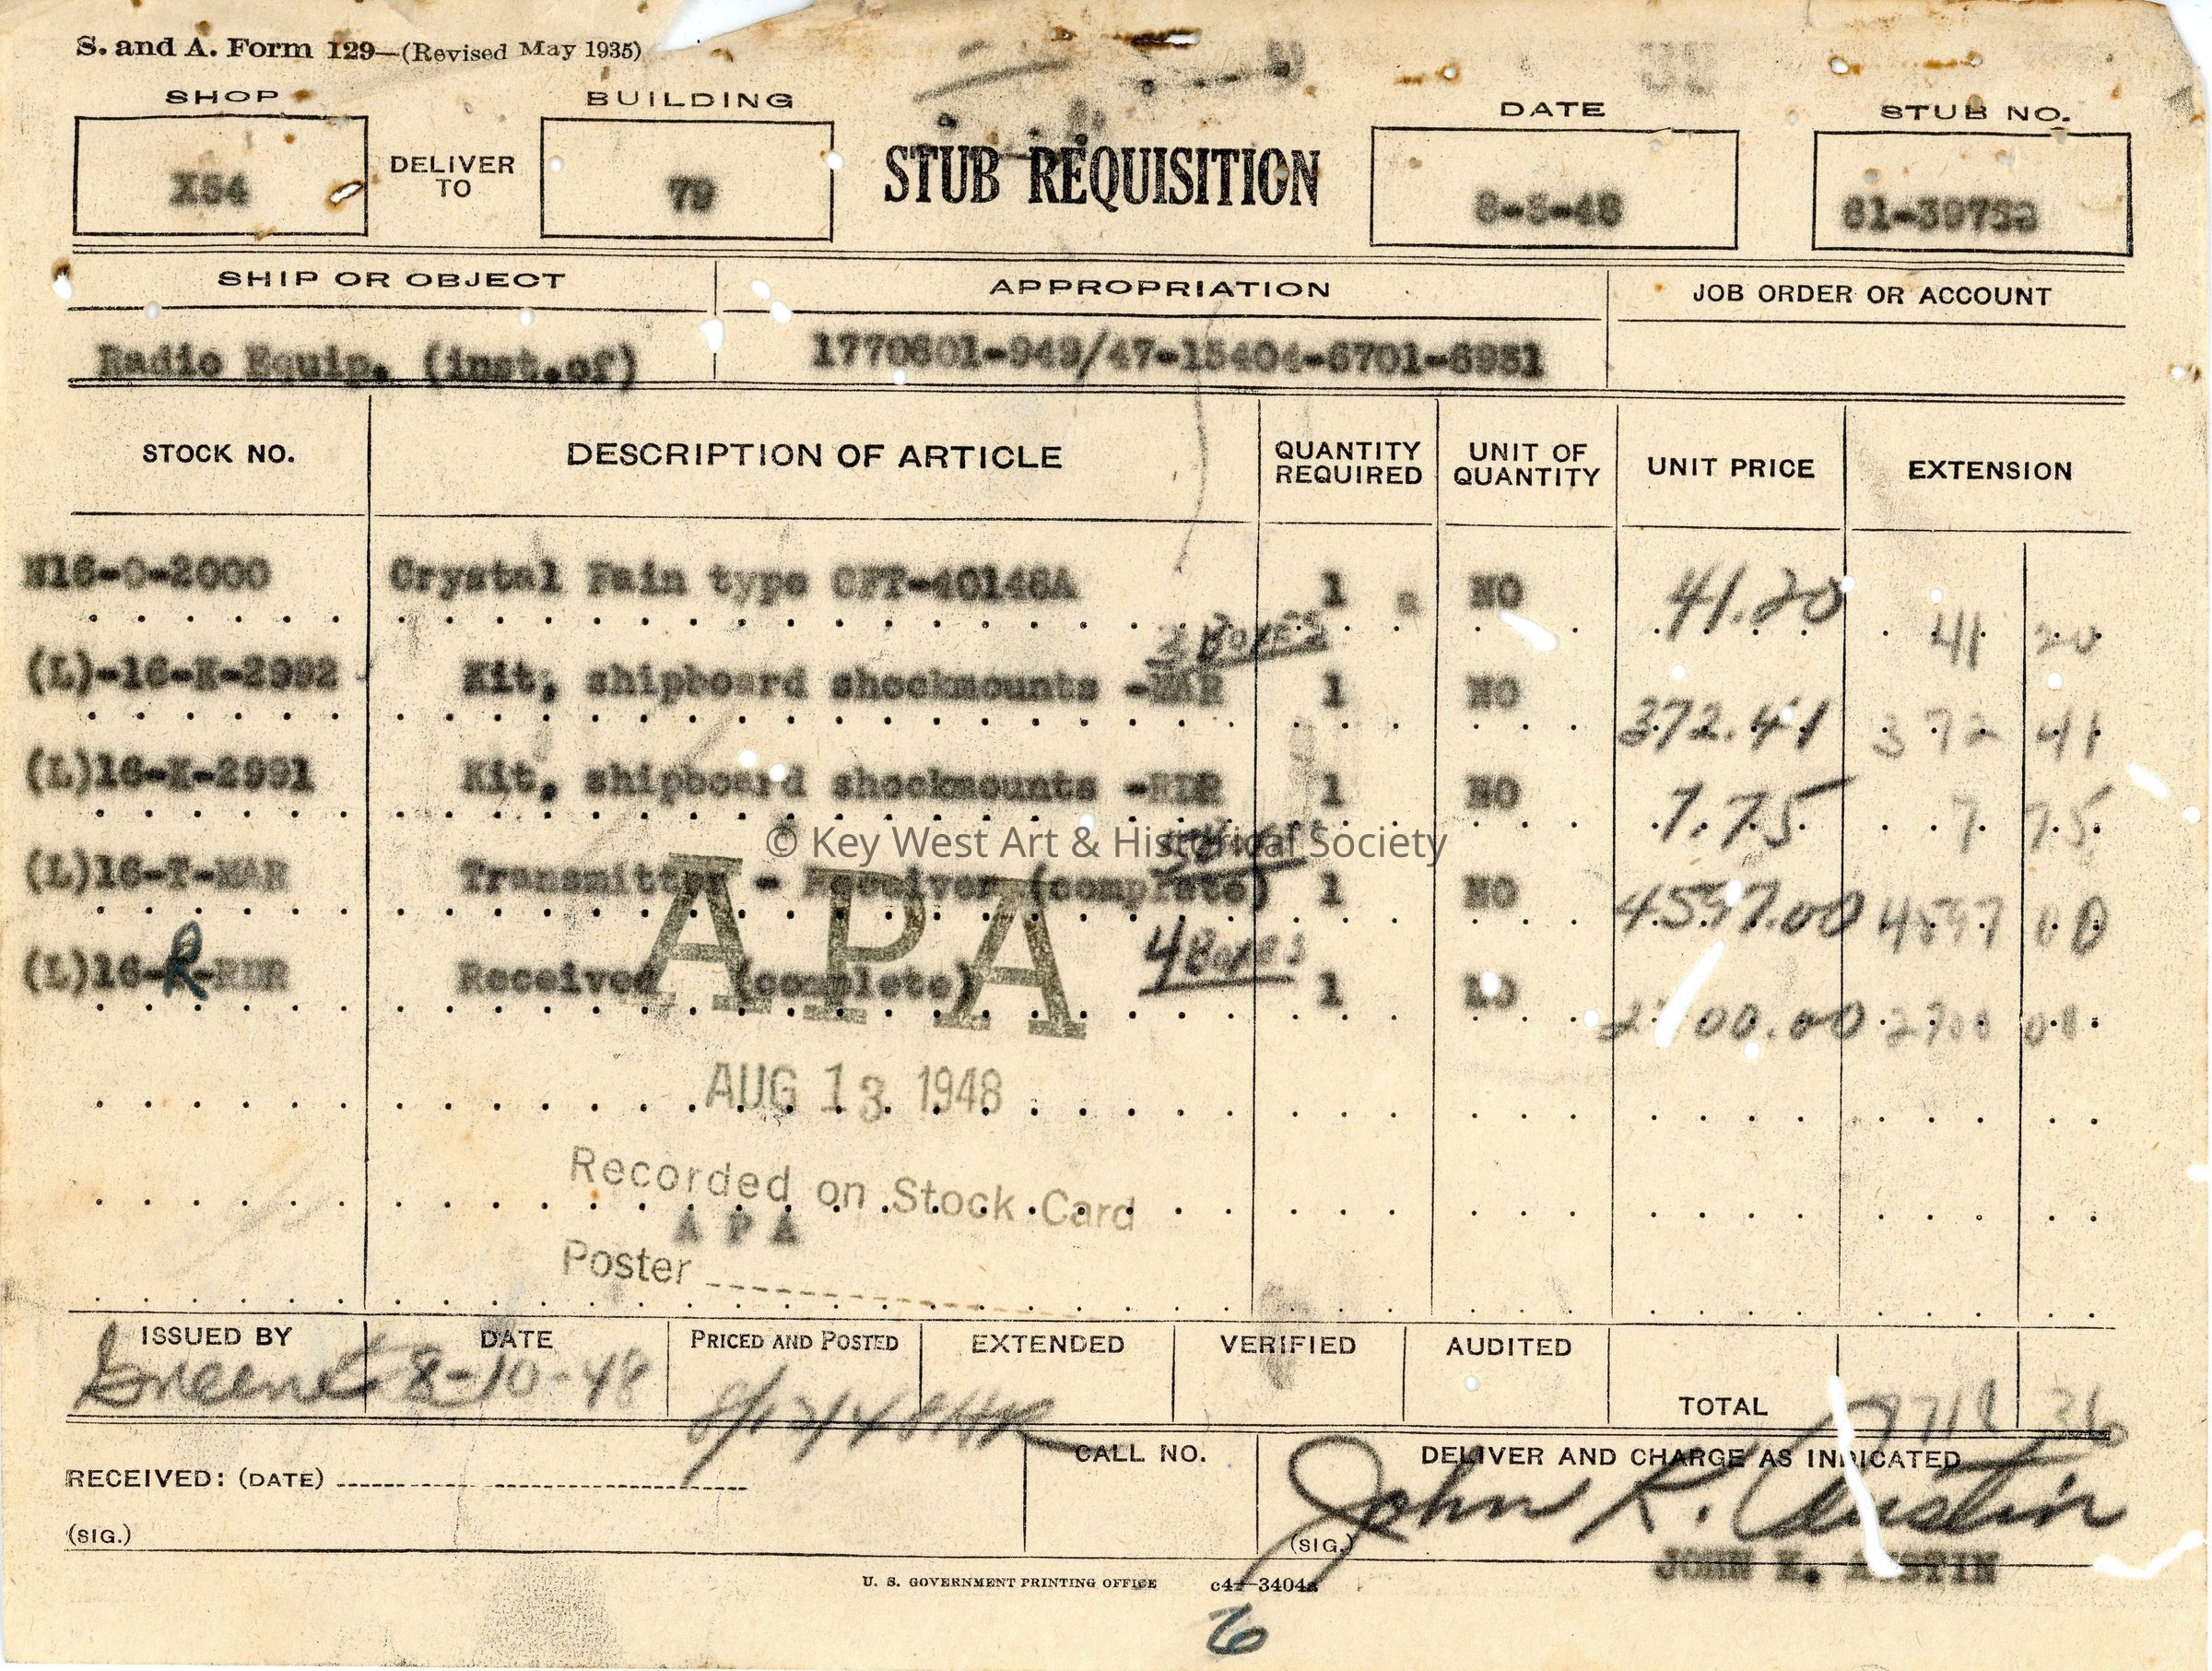 S. and A. Form 129—(Revised May 1935)
SHOP
BUILDING
DATE
STUB NO.
X54
DELIVER TO
79
STUB REQUISITION
8-5-48
61-39758
SHIP OR OBJECT
APPROPRIATION
JOB ORDER OR ACCOUNT
Radio Equip. (inst.of)
1770601-949/47-15404-6701-6951
STOCK NO.
DESCRIPTION OF ARTICLE
QUANTITY REQUIRED
UNIT OF QUANTITY
UNIT PRICE
EXTENSION
N16-O-2000 Crystal Pain type CFT-40146A 1 NO 41.20 41 20
Boxes
(L)-16-K-2992 Kit, shipboard shockmounts -MAR 1 NO 372.41 372 41
(L)16-K-2991 Kit, shipboard shockmounts -RDR 1 NO 7.75 7 75
© Key West Art & Historical Society
(L)16-T-MAR Transmitter - Receiver (complete) 1 NO 4597.00 4597 00
4 Boxes
(L)16-R-RDR Received (complete) 1 00.00 2700 00
APA
AUG 13 1948
Recorded on Stock Card
A P A
Poster
ISSUED BY
DATE
PRICED AND POSTED
EXTENDED
VERIFIED
AUDITED
TOTAL
Greene 8-10-48
7718 36
RECEIVED: (DATE)
CALL NO.
DELIVER AND CHARGE AS INDICATED
John K. Austin
(SIG.)
(SIG.)
JOHN K. AUSTIN
U. S. GOVERNMENT PRINTING OFFICE c41—3404a
6